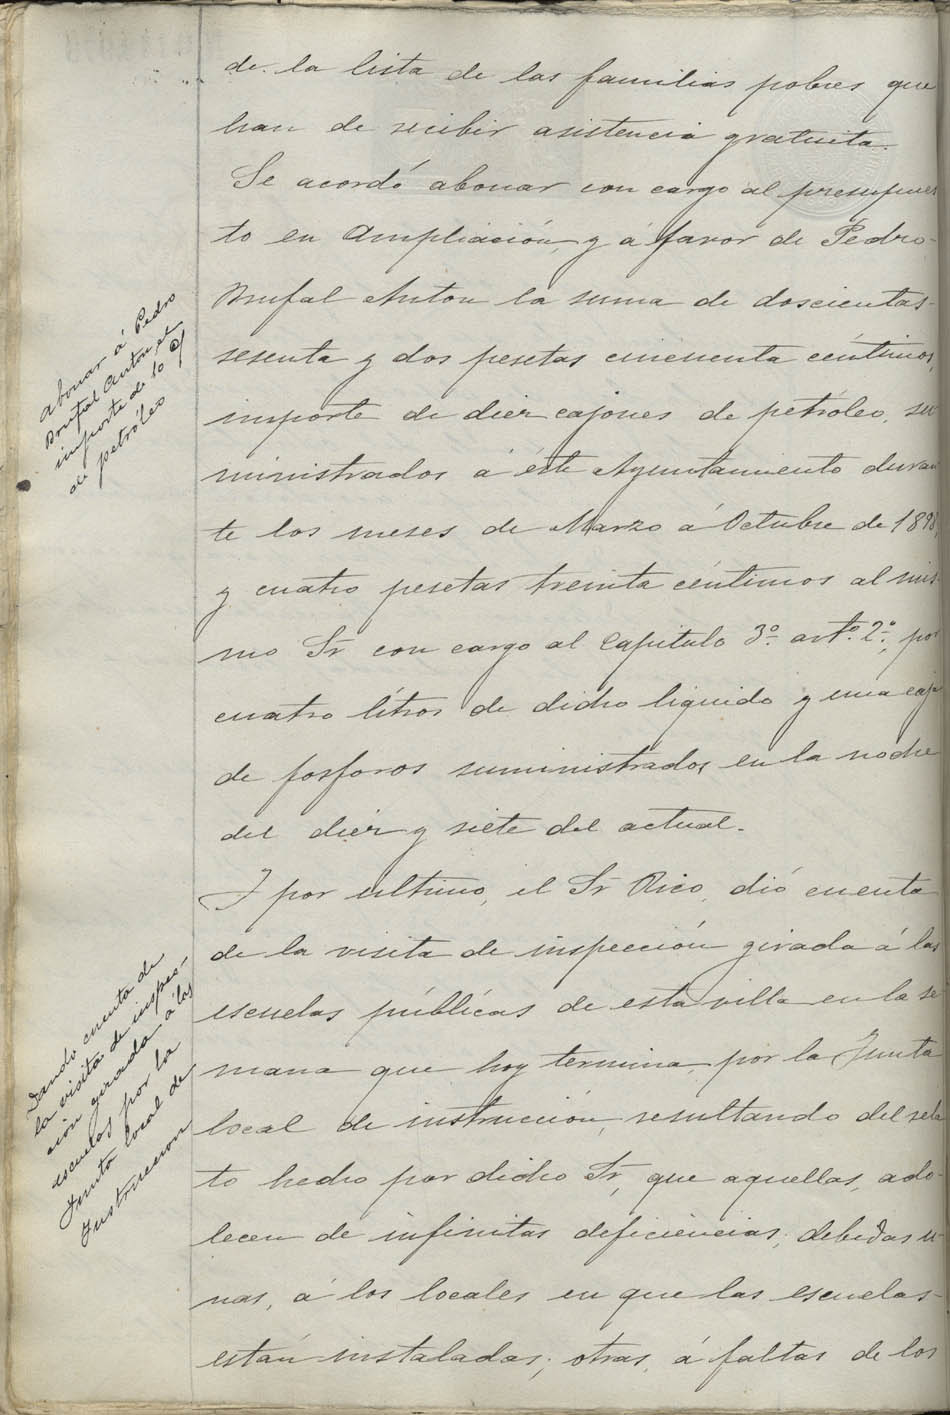 de la lista de las familias pobres que
han de recibir asistencia gratuita.
Se acordó abonar con cargo al presupues
to en ampliación, y á favor de Pedro
Brufal Anton la suma de doscientas
sesenta y dos pesetas cincuenta céntimos,
importe de diez cajones de petróleo, su
ministrados á éste Ayuntamiento duran
te los meses de Marzo á Octubre de 1898,
y cuatro pesetas treinta céntimos al mis
mo Sr con cargo al Capitulo 3º artº 2º, por
cuatro litros de dicho liquido y una caja
de fosforos suministrados en la noche
del diez y siete del actual.
Y por ultimo, el Sr Rico, dió cuenta
de la visita de inspección girada á las
escuelas públicas de esta villa en la se
mana que hoy termina, por la Junta
local de instrucción, resultando del rela
to hecho por dicho Sr, que aquellas, ado-
lecen de infinitas deficiencias; debidas u-
nas, á los locales en que las escuelas
están instaladas; otras, á faltas de los
abonar á Pedro
Brufal Anton, el
importe de 10 c/
de petróleo
Dando cuenta de
la visita de inspec-
ción girada á las
escuelas por la
Junta local de
Instruccion